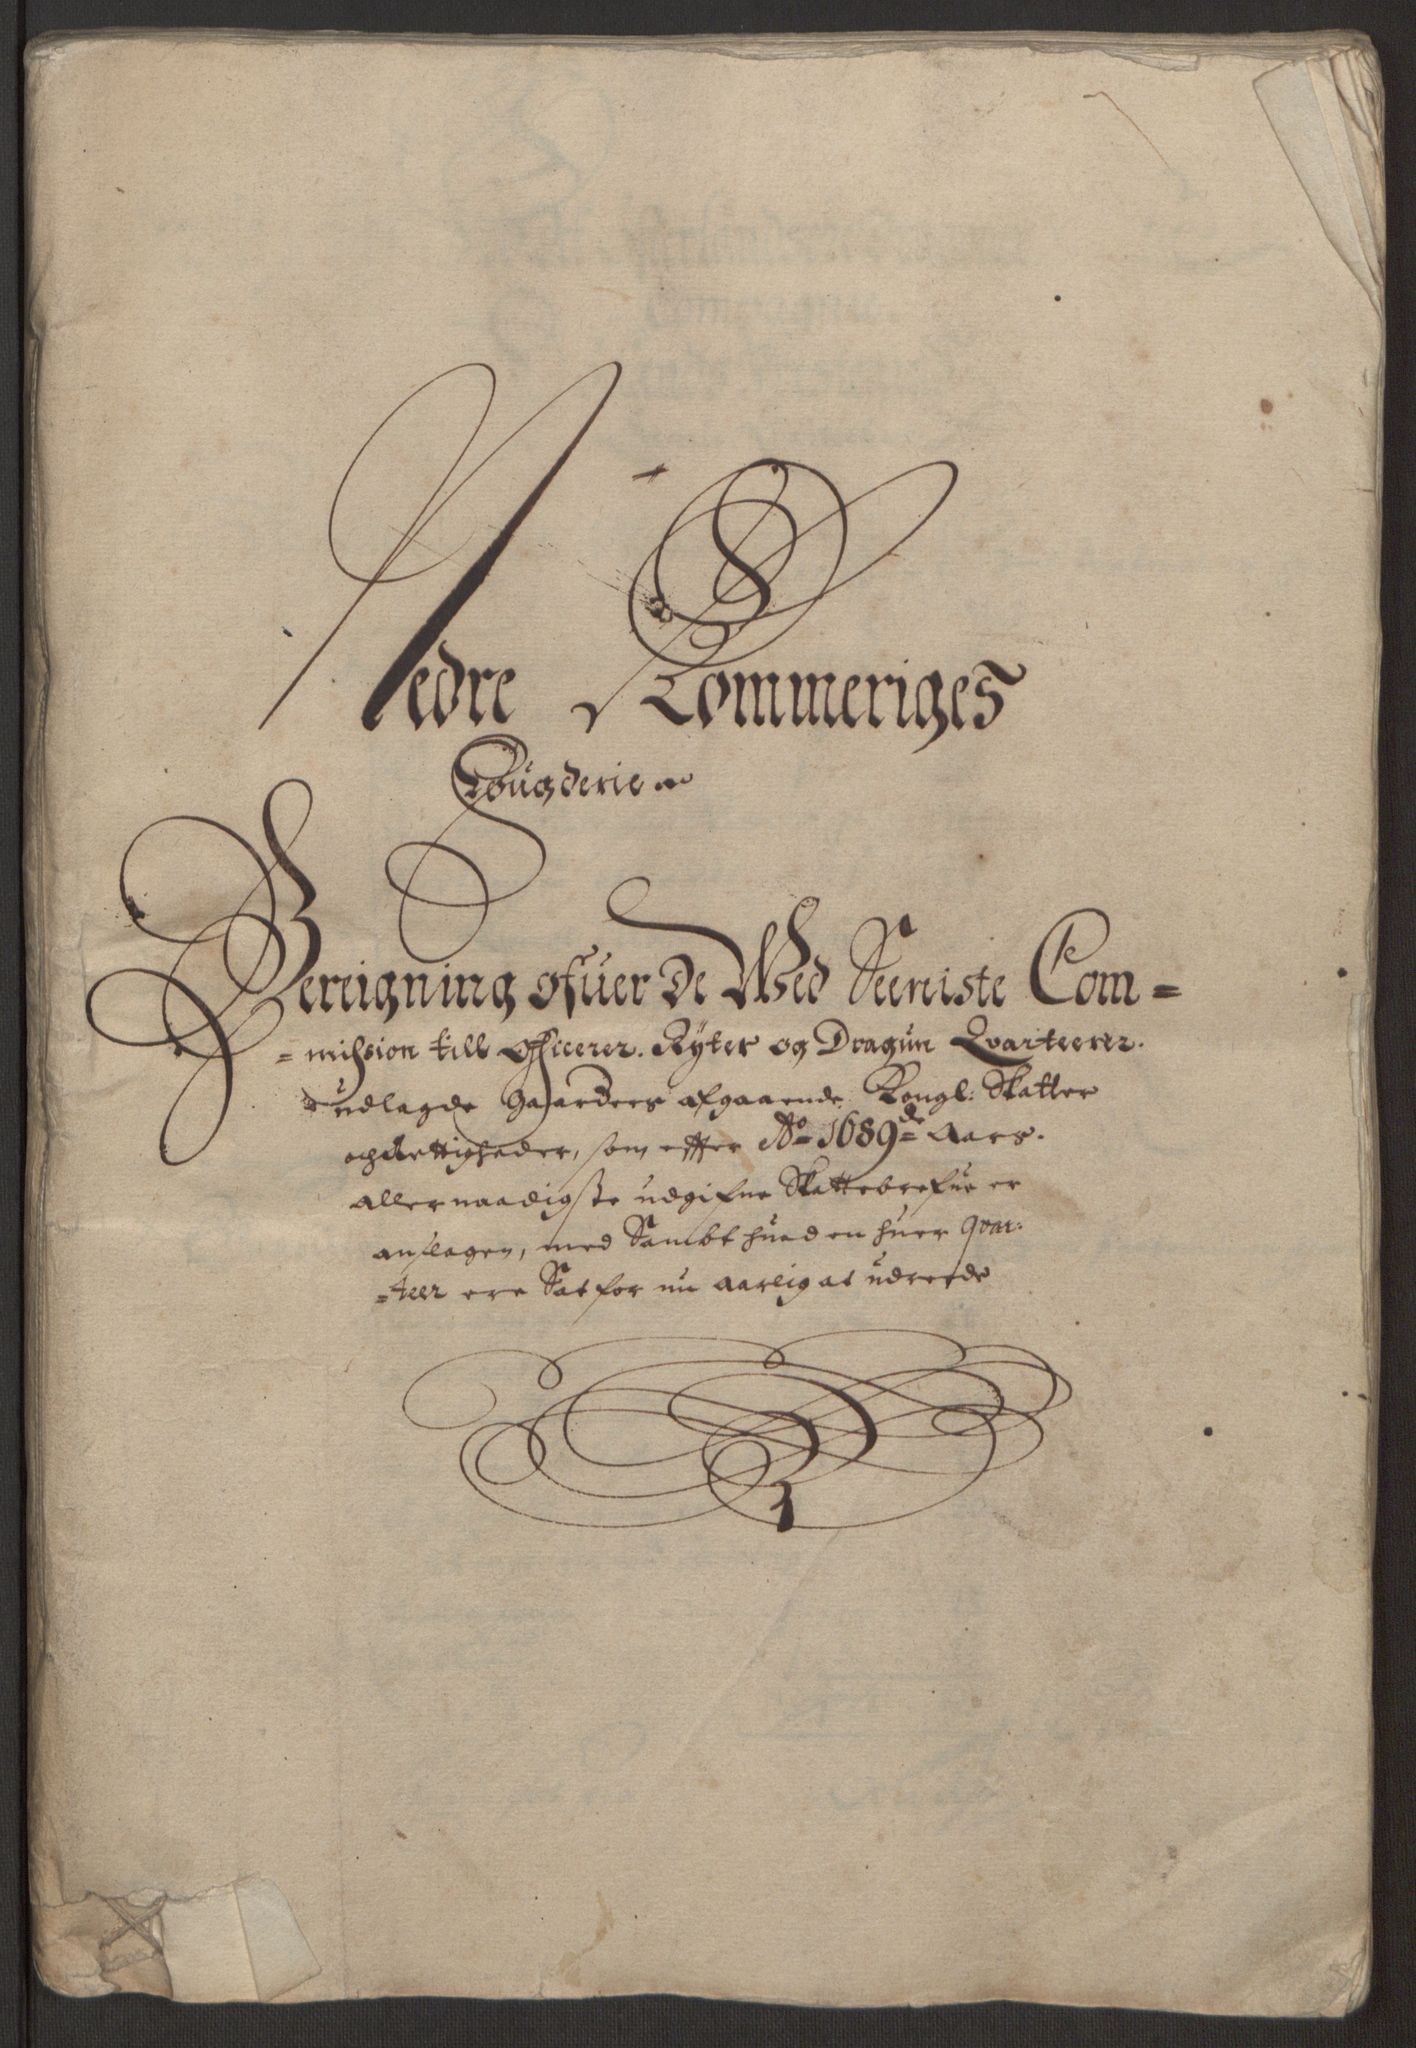 Nedre Rommeriges
Fougderie
Bereigning ofuer de Wed Seeniste Com=
=mihsion till Officerer. Rÿter og Dragun Qvarteerer.
udlagde gaarders afgaaende Kongl: Skatter
och Rettigheder, som effter Ao 1689de Aars.
allernaadigste udgifne Skattebrefue er
anslagen, med Sambt huad en huer qvar:
=teer ere Sat for nu aarlig at udreede